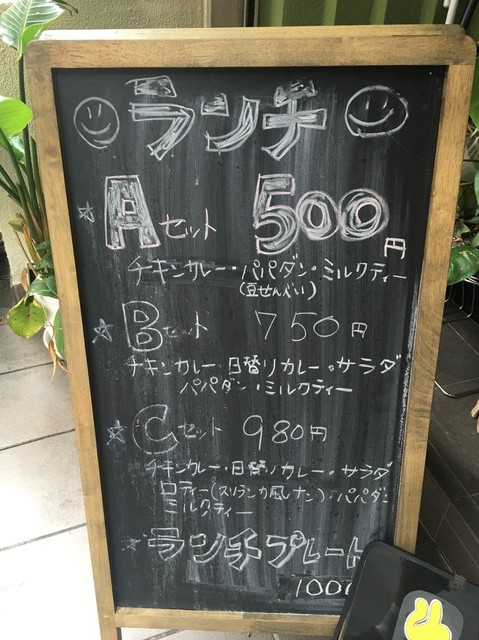 ランチ
Aセット 500円
チキンカレー・パパダン・ミルクティー
(豆せんべい)
Bセット 750円
チキンカレー・日替りカレー・サラダ
パパダン・ミルクティー
Cセット 980円
チキンカレー・日替りカレー・サラダ
ロティー(スリランカ風ナン)・パパダン
ミルクティー
ランチプレート
100